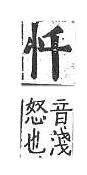 忏
音淺
怒也